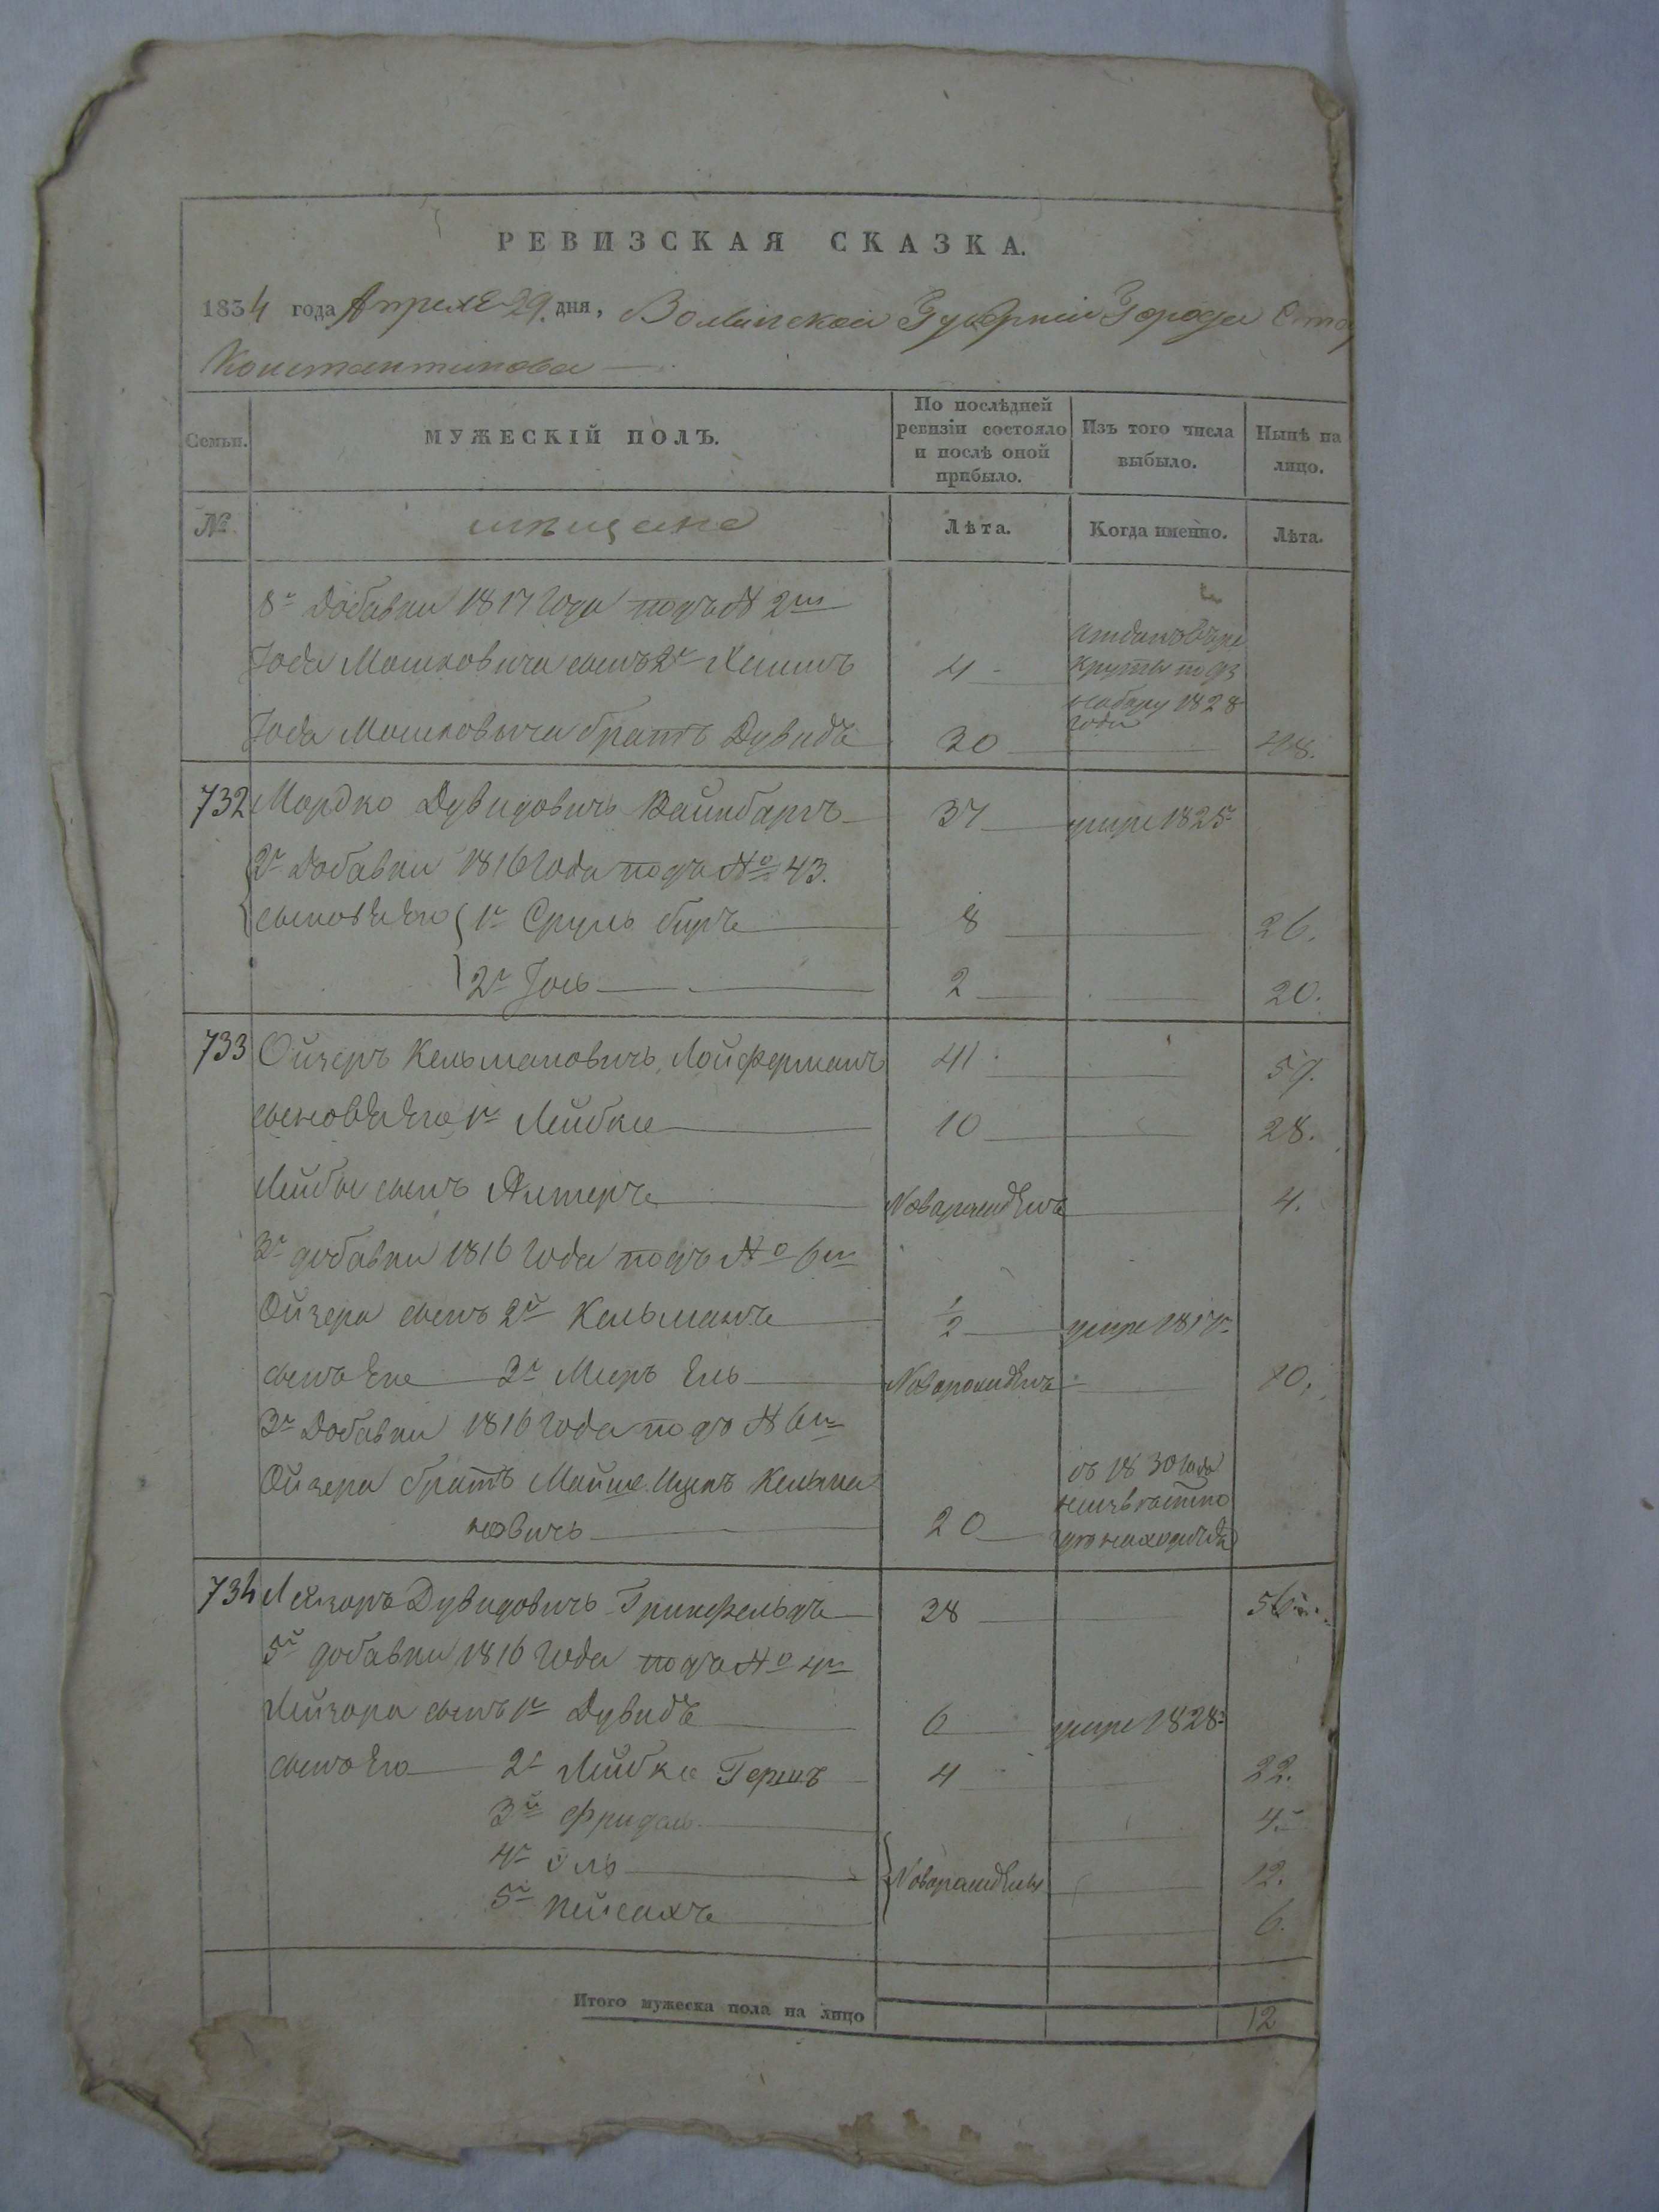 РЕВИЗСКАЯ СКАЗКА.
1834 года Апреля 29. дня, Волынской Губернии Города Старо
Константинова
Семьи. МУЖЕСКІЙ ПОЛЪ. По послѣдней ревизіи состояло и послѣ оной прибыло. Изъ того числа выбыло. Нынѣ на лицо.
№ мѣщане Лѣта. Когда именно. Лѣта.
8й Добавки 1817 Года подъ N 2м
Іося Мошковича сынъ 2й 4 отданъ въ рекруты по 93 набору 1828 года
Іося Мошковича братъ Дувидъ 30 48.
732 Мордко Дувидовичъ Вайнбаргъ 37 умре 1825г
3й Добавки 1816 Года подъ No 43.
сыновья Его 1й Сруль Беръ 8 26.
2й Іось 2 20.
733 Ойзеръ Кельмановичъ Лойферманъ 41 59.
сыновья Его 1й Лейбка 10 28.
Лейбы сынъ Алтеръ Новорожденъ 4.
3й добавки 1816 Года подъ No 6м
Ойзера сынъ 2й Кельманъ 1/2 умре 1817г
сынъ Его 3й Меръ Ель Новорожденъ 10.
3й Добавки 1816 Года подъ N 6м
Ойзера братъ Мойше Ицекъ Кельма
новичъ 20 съ 1830 года неизвѣстно где находится
734 Лейзоръ Дувидовичъ Гринфельдъ 38 56.
5й добавки 1816 Года подъ No 4м
Лейзора сынъ 1й Дувидъ 6 умре 1828г
сынъ Его 2й Лейбка Гершъ 4 22.
3й Фридель 4.
4й Ель Новорожденны 12.
5й Пейсахъ 6.
Итого мужеска пола на лицо 12